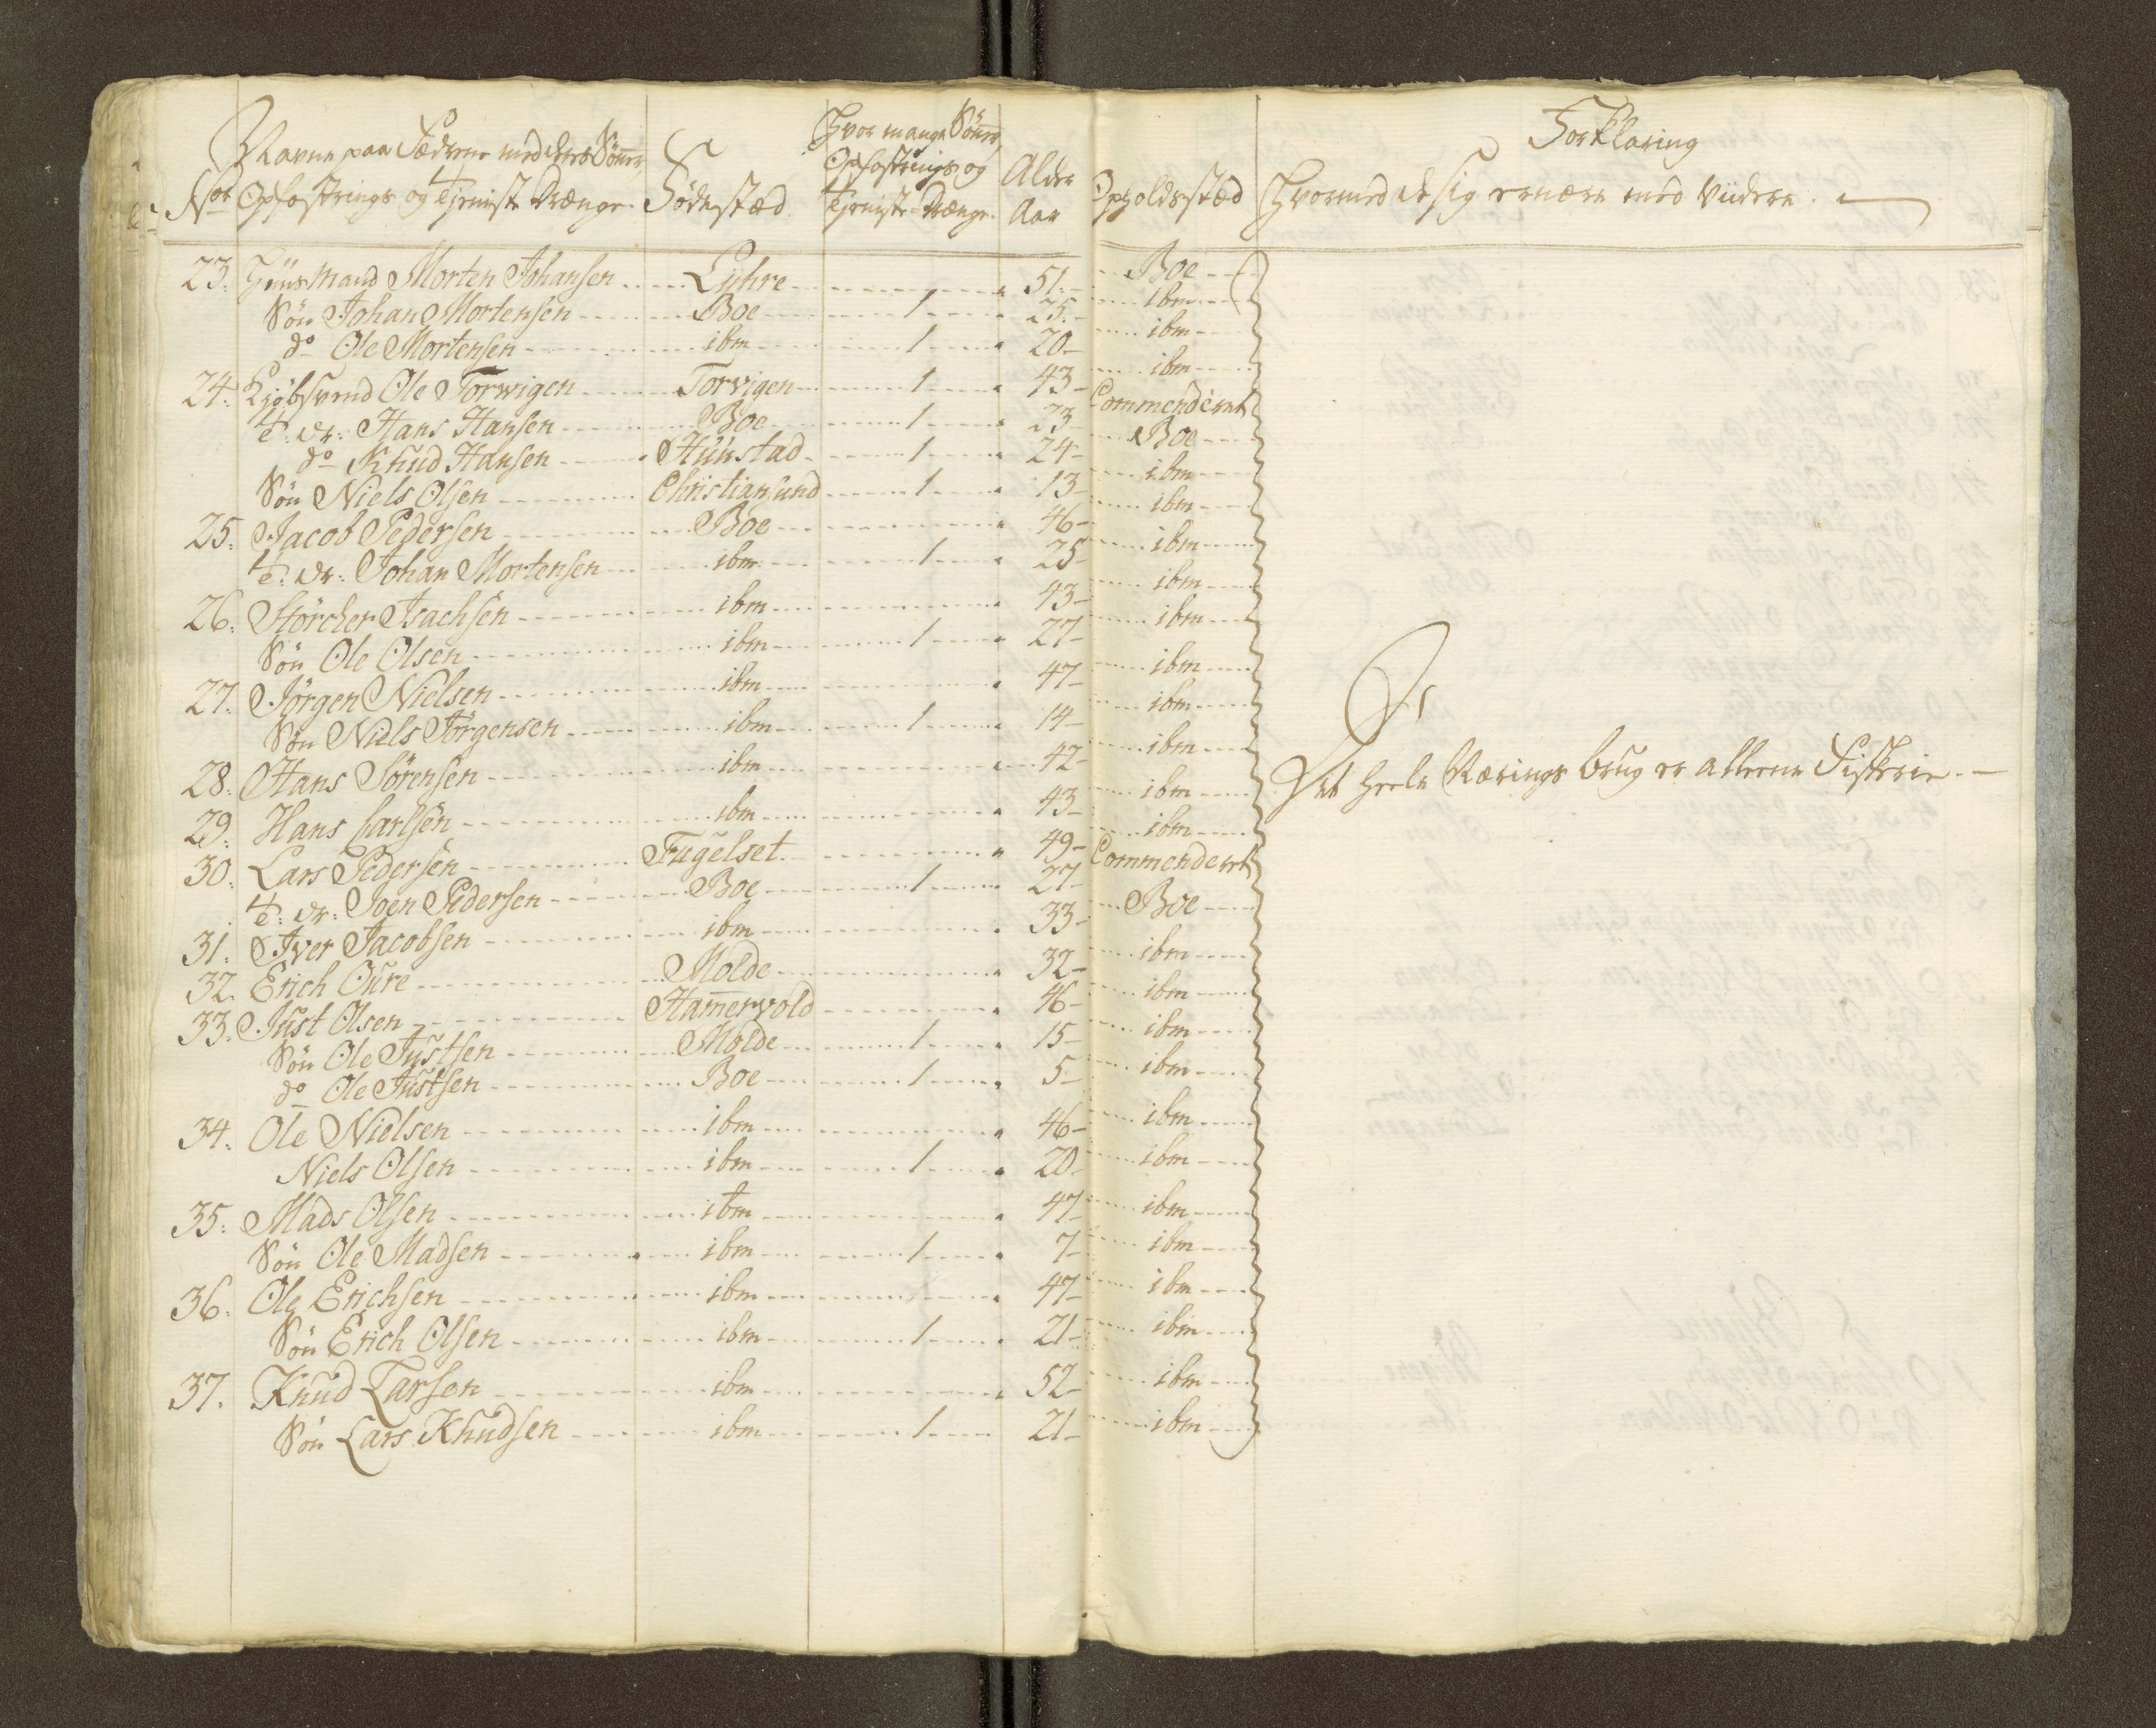 Navne paa Fædrene med deres Sönner, Opfostrings og Tjeniste Drænge. Födestæd Hvor mange Sönner, Opfostrings og Tjeniste-Drænge. Alder Aar Opholdsstæd Forklaring Hvormed de sig ernære med Viidere.
23. Huusmand Morten Johansen Lyhre 51. Boe
Sön Johan Mortensen Boe 1 25. Ibm
do Ole Mortensen ibm 1 20 ibm
24. Kjöbsvend Ole Torwigen Torvigen 1 43 ibm
T: Dr: Hans Hansen Boe 1 23 Commenderet
do Knud Hansen Hunstad 1 24 Boe
Sön Niels Olsen Christiansund 1 13 ibm
25. Jacob Pedersen Boe 46 ibm
T: Dr: Johan Mortensen ibm 1 25 ibm
26. Störcher Isachsen ibm 43 ibm
Sön Ole Olsen ibm 1 27 ibm
27. Jörgen Nielsen ibm 47 ibm
Sön Niels Jörgensen ibm 1 14 ibm
28. Hans Sörensen ibm 42 ibm
29. Hans Carlsen ibm 43 ibm
30. Lars Pedersen Fugelset 49 ibm
T: Dr: Joen Pedersen Boe 1 27 Commenderet
31. Iver Jacobsen ibm 33 Boe
32. Erich Oure Molde 32 ibm
33. Just Olsen Hamervold 46 ibm
Sön Ole Justsen Molde 1 15 ibm
do Ole Justsen Boe 1 5 ibm
34. Ole Nielsen ibm 46 ibm
Niels Olsen ibm 1 20 ibm
35. Mads Olsen ibm 47 ibm
Sön Ole Madsen ibm 1 7 ibm
36. Ole Erichsen ibm 47 ibm
Sön Erich Olsen ibm 1 21 ibm
37. Knud Larsen ibm 52 ibm
Sön Lars Knudsen ibm 1 21 ibm
Det heele Nærings brug er alleene Fiskerie.